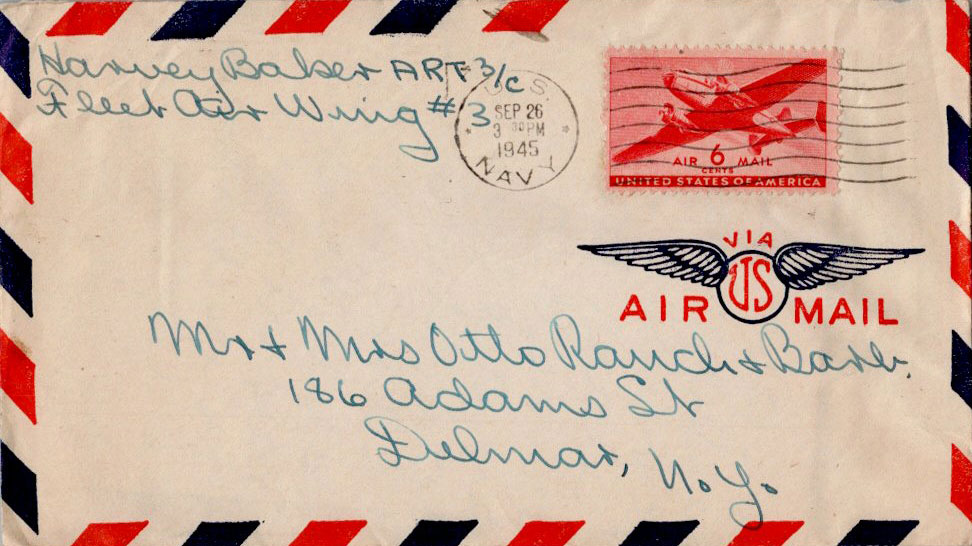 Harvey Baker ART 3/c
Fleet Air Wing #3
U.S.
SEP 26
3 30 PM
1945
NAVY
AIR 6 MAIL
CENTS
UNITED STATES OF AMERICA
VIA
AIR US MAIL
Mr + Mrs Otto Rauch + Barb.
186 Adams St
Delmar, N.Y.